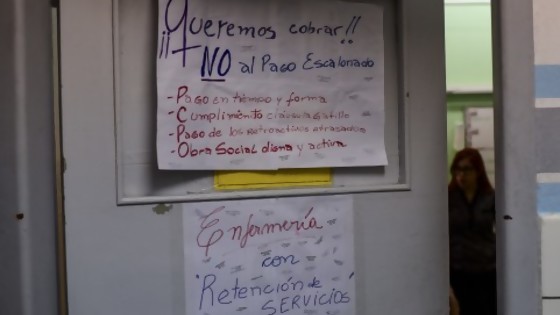 ¡¡Queremos cobrar!!
NO al Pago Escalonado
- Pago en tiempo y forma
- Cumplimiento cláusula Gatillo
- Pago de los retroactivos atrasados
- Obra Social digna y activa
Enfermería
con
"Retención de
SERVICIOS"